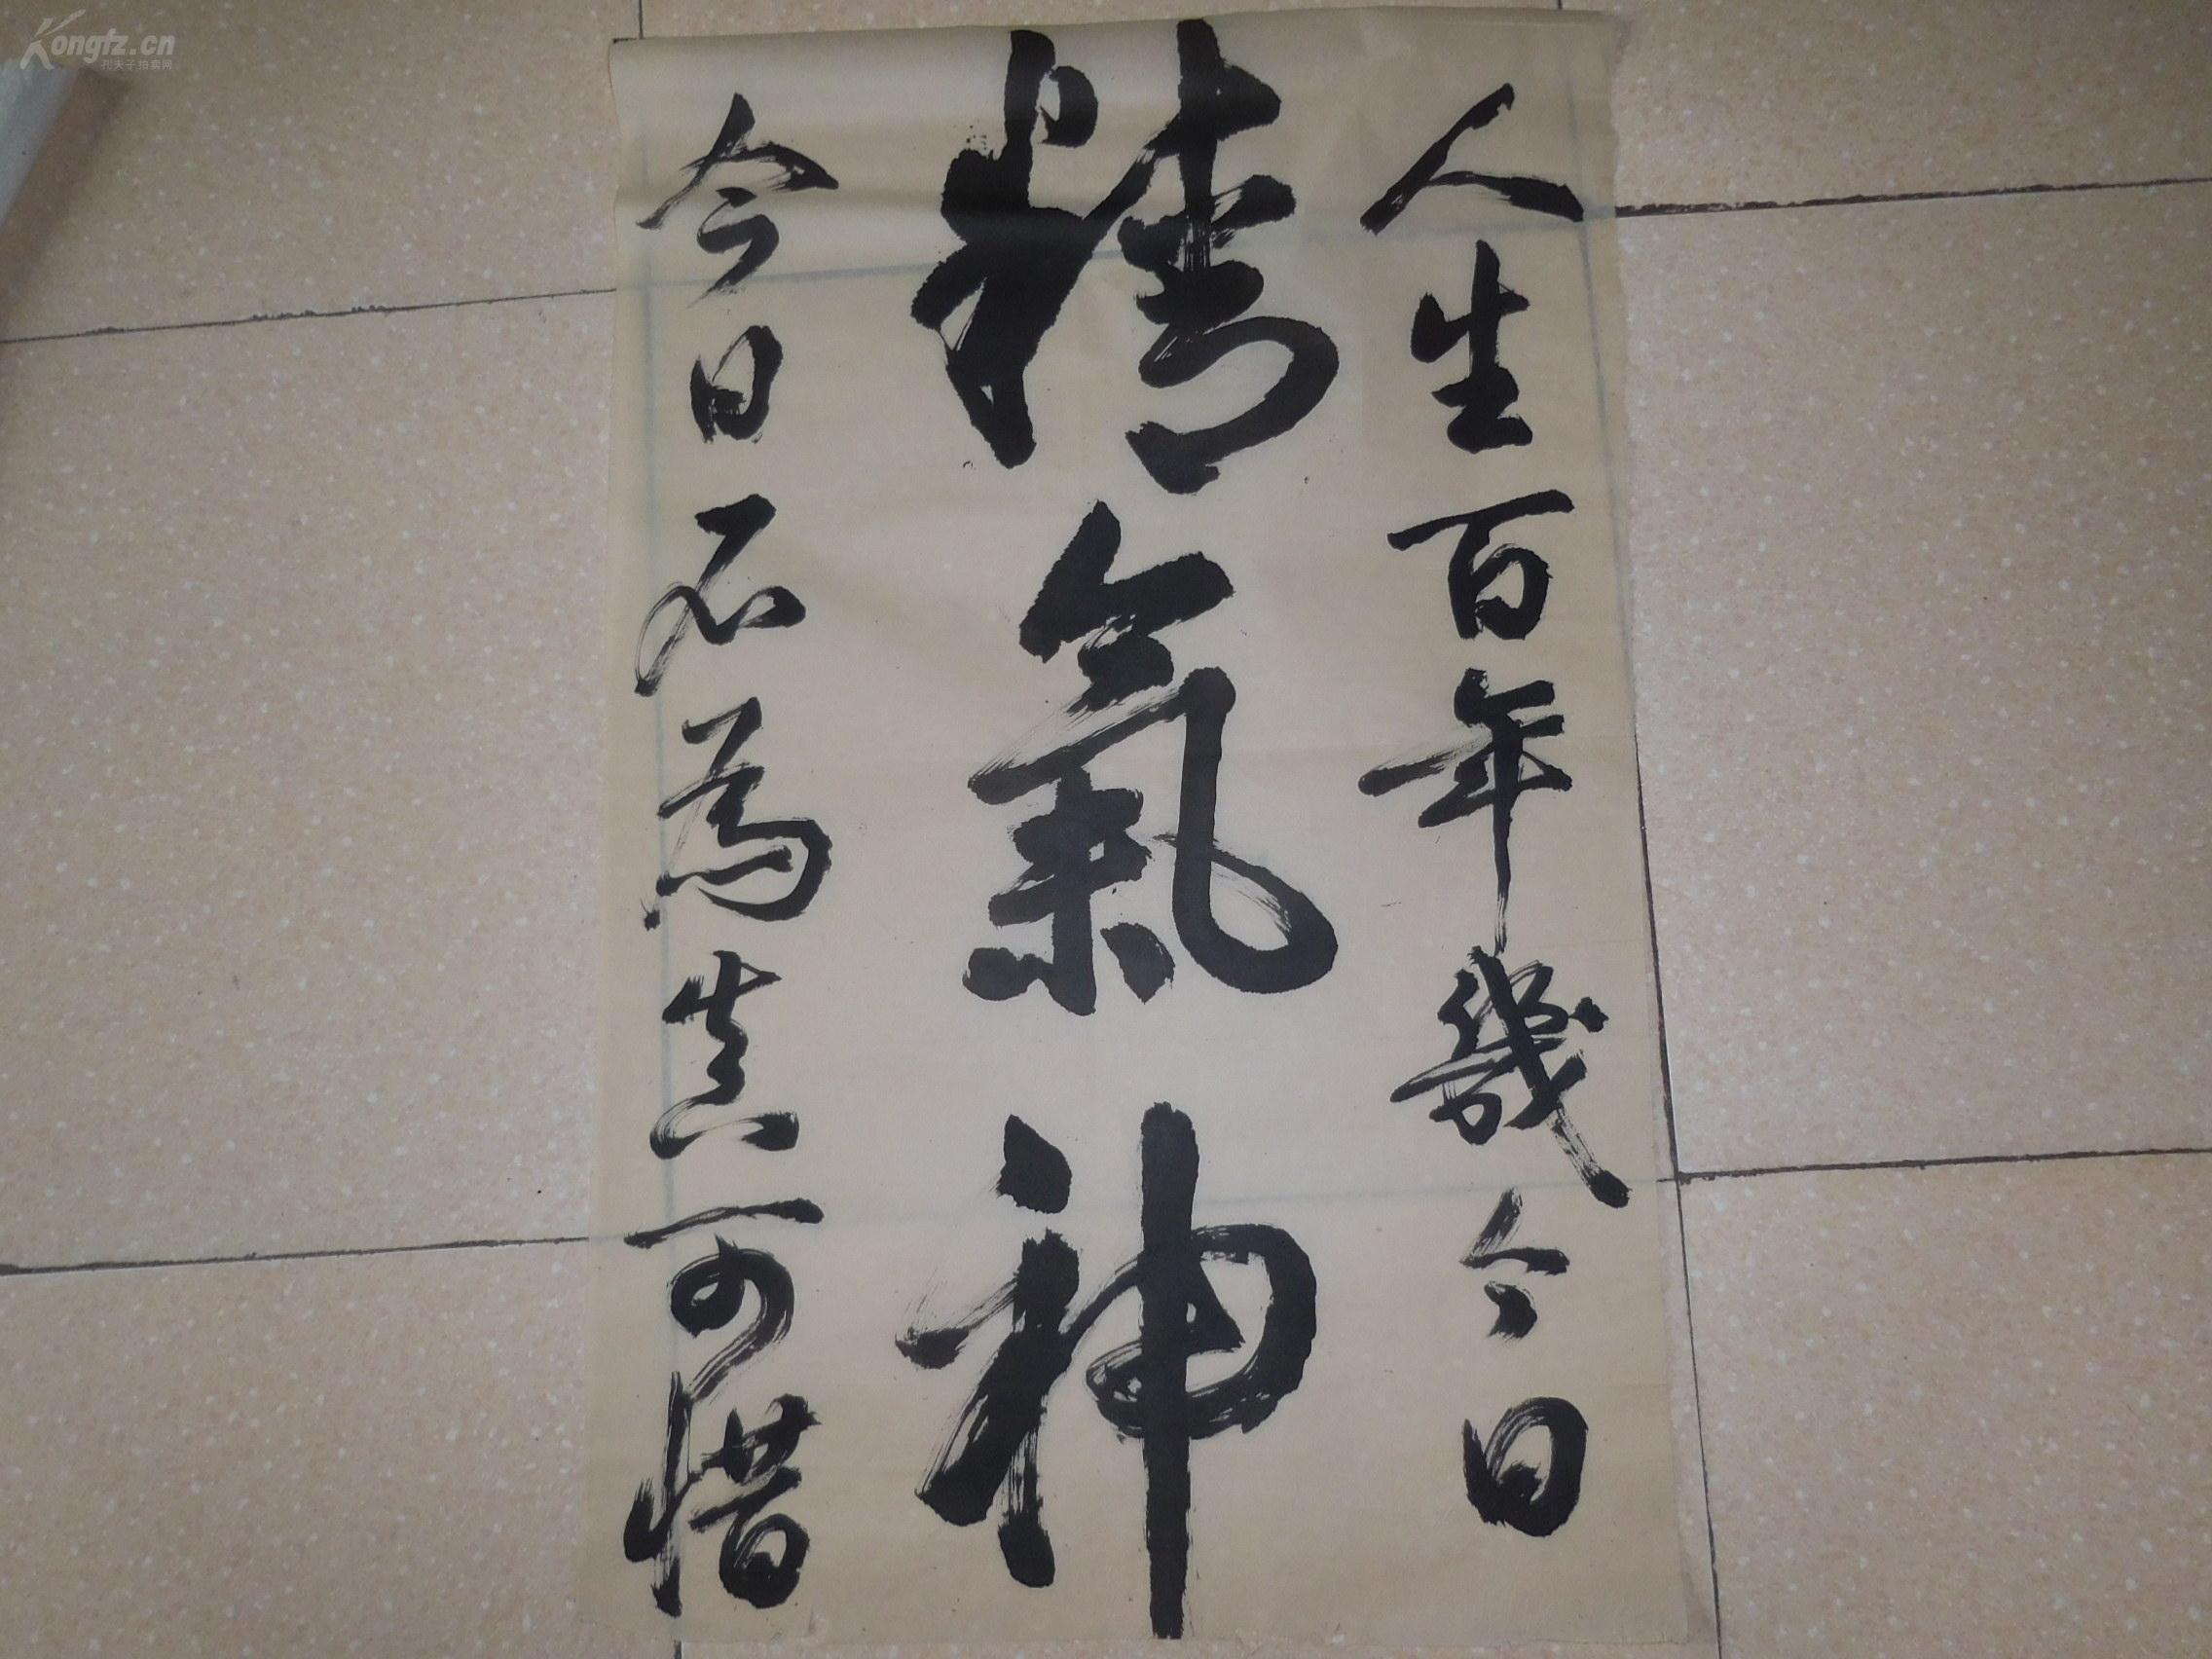 人生百年幾今日
精氣神
今日不為真可惜
Kongfz.cn
孔夫子拍卖网